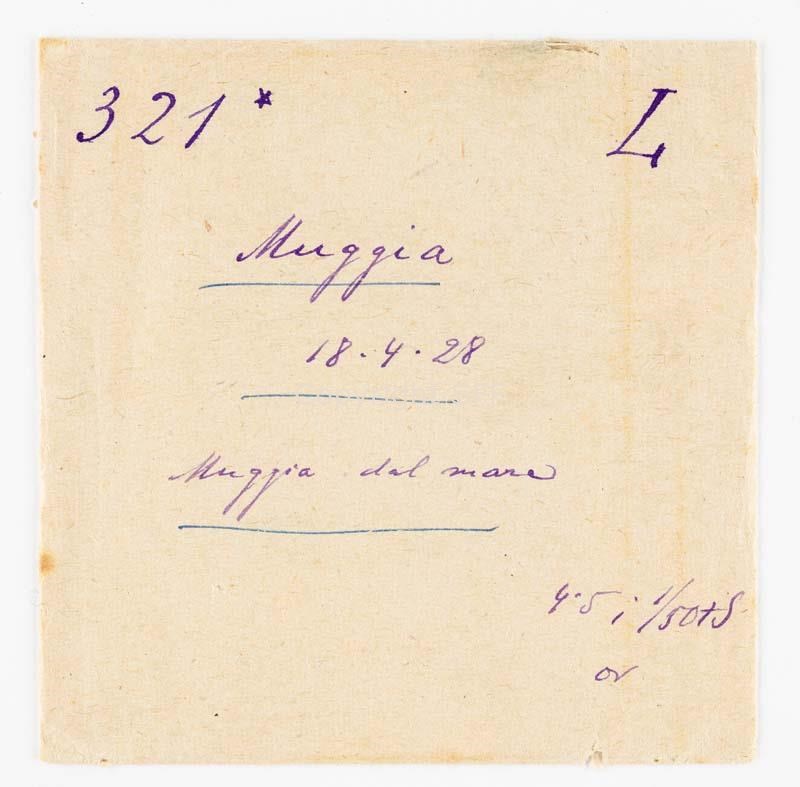 321* L
Muggia
18.4.28
Muggia dal mare
4.5 i 1/50+S
or